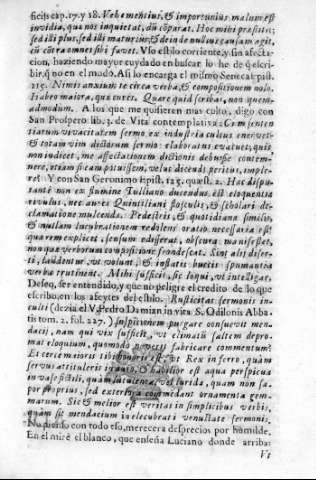 ficijs cap. 17. y 18. Vehementius, & importunius malum est
invidia, quæ nos inquietat, dũ cõparat. Hoc mihi præstitit;
sed isti plus, sed isti maturius; & deinde nullius causam agit,
cũ cõtra omnes sibi favet. Vso estilo corriente, y sin afecta-
cion, haziendo mayor cuydado en buscar lo q̃ he de escri-
bir, q̃ no en el modo. Asi lo encarga el mismo Seneca Epist.
115. Nimis anxium te circa verba, & compositionem nolo.
Habeo maiora, quæ cures. Quære quid scribas, non quem-
admodum. A los que me quisieren mas culto, digo con
San Prospero lib. 3. de Vita contemplativa: Cum senten
tiarum vivacitatem sermo ex industria cultus enervet:
& totam vim dictorum sermo elaboratus evacuet, quis
mon iudicet, me affectationem dictionis debuisse contem-
nere, etiam si eam potuissem, velut dicendi peritus, imple-
re? Y con San Geronimo Epist. 125. quæst. 2. Hæc dispu-
tante non ex flumine Tulliano ducendus est eloquentiæ
rivulus, nec aures Quintiliani flosculis, & scholari de-
clamatione mulcendæ. Pedestris, & quotidianæ similis,
& nullam lucubrationem redolens oratio necessaria est
quæ rem explicet, sensum edisserat, obscura manifestet,
non quæ verborum compositione frondescat. Sint alij diser-
ti, laudentur, ut volunt, & inflatis buccis spumantia
verba trutinent. Mihi sufficit, sic loqui, ut intelligar.
Deseo, ser entendido, y que no peligre el credito de lo que
escribo, en los afeytes del estilo. Rusticitas sermonis in-
culti (dezia el V. Pedro Damian in vita S. Odilonis Abba-
tis tom. 2. fol. 227.) suspicionem purgare consuevit men-
dacij, nam qui vix sufficit, ut elimatũ saltem depro-
mat eloquium, quomodo noverit fabricare commentum?
Et certe maioris tibi est, ut Rex in ferro, quàm
servus attituleris in auro. & habilior est aqua perspicua
in vase fictili, quàm lutulenta, vel turida, quam non sa-
por proprius, sed exterior commendant ornamenta gem-
marum. Sic & melior est veritas in simplicibus verbis,
quàm sic mendacium in elucubrati venustate sermoni.
No pienso con todo eso, merecerà desprecios por humilde.
En el mirè el blanco, que enseña Luciano donde arriba: